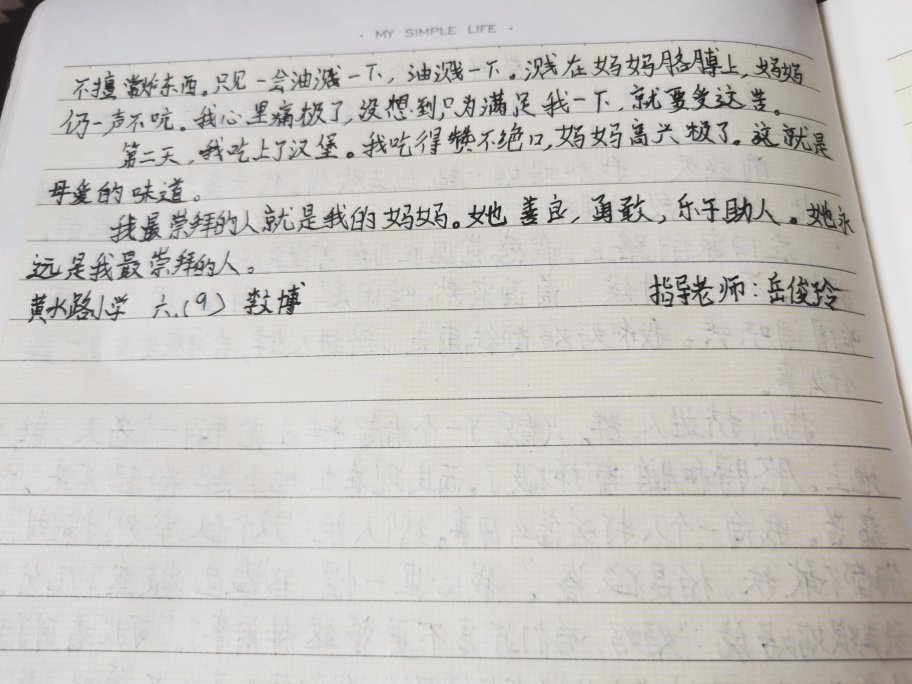 · MY SIMPLE LIFE ·
不擅常炸东西。只见一会油溅一下，油溅一下。溅在妈妈胳膊上，妈妈
仍一声不吭。我心里痛极了，没想到只为满足我一下，就要受这苦。
第二天，我吃上了汉堡。我吃得赞不绝口，妈妈高兴极了。这就是
母爱的味道。
我最崇拜的人就是我的妈妈。她善良，勇敢，乐于助人。她永
远是我最崇拜的人。
黄水路小学 六.(9) 博
指导老师：岳俊玲